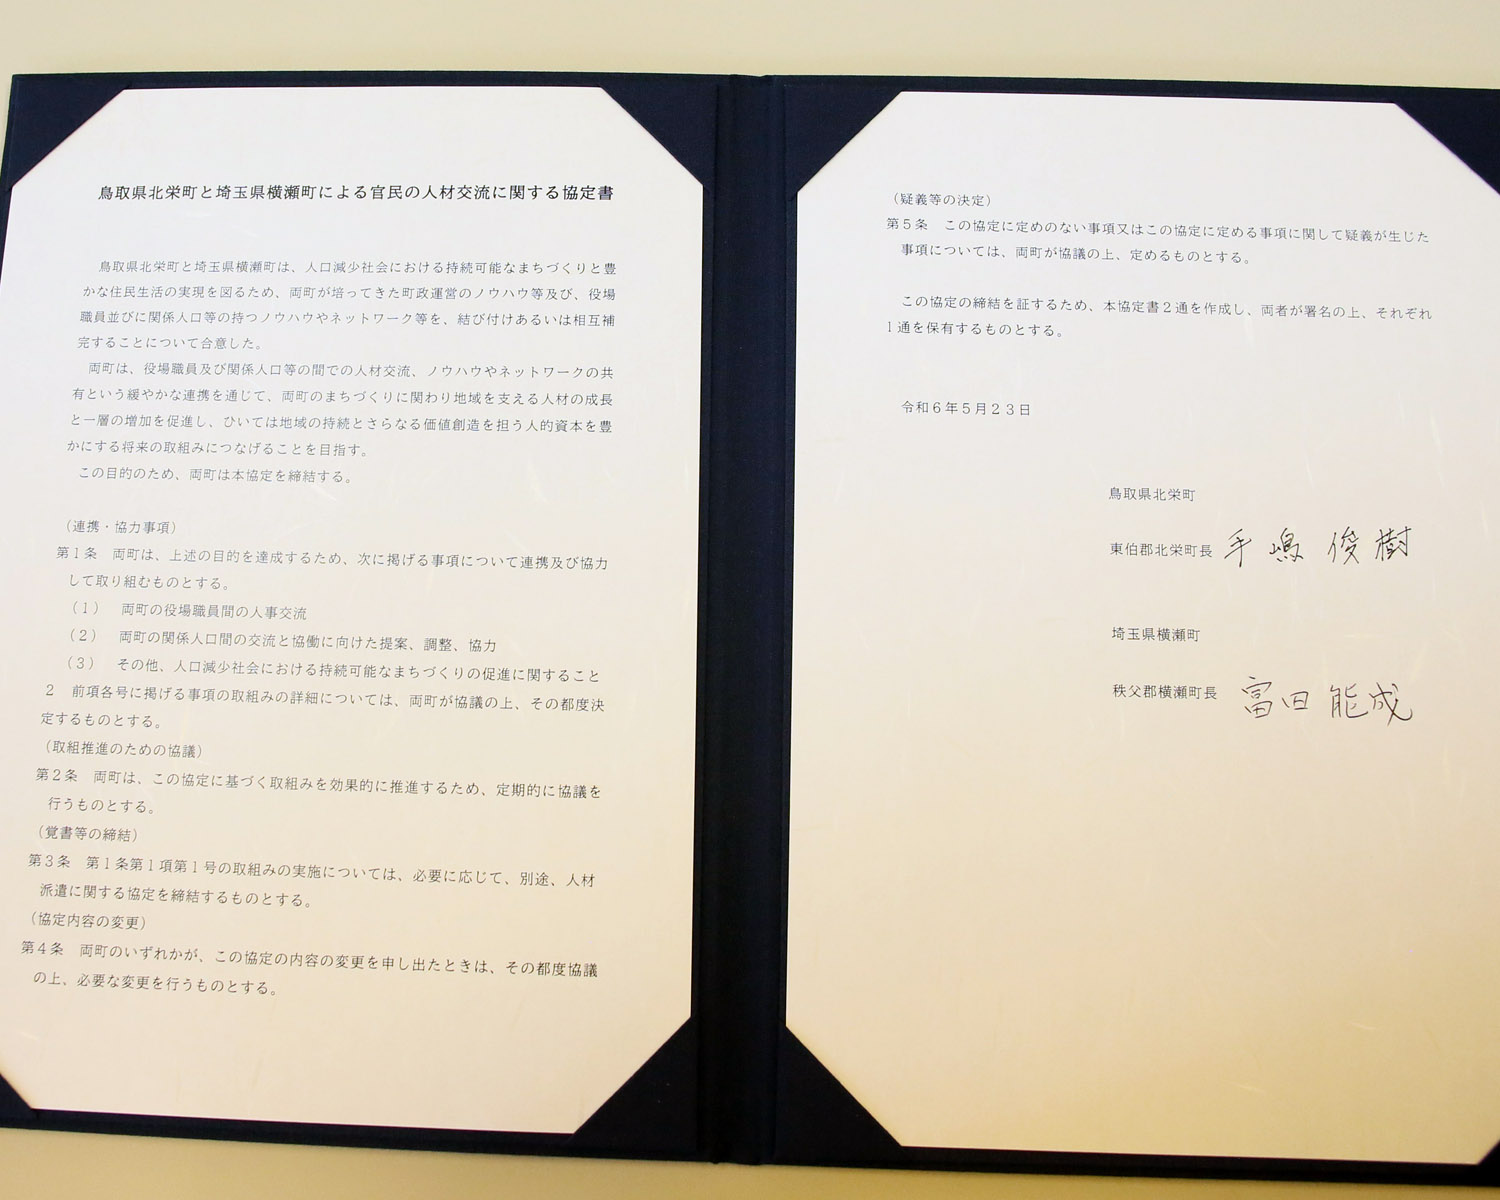 鳥取県北栄町と埼玉県横瀬町による官民の人材交流に関する協定書
鳥取県北栄町と埼玉県横瀬町は、人口減少社会における持続可能なまちづくりと豊
かな住民生活の実現を図るため、両町が培ってきた町政運営のノウハウ等及び、役場
職員並びに関係人口等の持つノウハウやネットワーク等を、結び付けあるいは相互補
完することについて合意した。
両町は、役場職員及び関係人口等の間での人材交流、ノウハウやネットワークの共
有という緩やかな連携を通じて、両町のまちづくりに関わり地域を支える人材の成長
と一層の増加を促進し、ひいては地域の持続とさらなる価値創造を担う人的資本を豊
かにする将来の取組みにつなげることを目指す。
この目的のため、両町は本協定を締結する。
（連携・協力事項）
第１条　両町は、上述の目的を達成するため、次に掲げる事項について連携及び協力
して取り組むものとする。
（１）　両町の役場職員間の人事交流
（２）　両町の関係人口間の交流と協働に向けた提案、調整、協力
（３）　その他、人口減少社会における持続可能なまちづくりの促進に関すること
２　前項各号に掲げる事項の取組みの詳細については、両町が協議の上、その都度決
定するものとする。
（取組推進のための協議）
第２条　両町は、この協定に基づく取組みを効果的に推進するため、定期的に協議を
行うものとする。
（覚書等の締結）
第３条　第１条第１項第１号の取組みの実施については、必要に応じて、別途、人材
派遣に関する協定を締結するものとする。
（協定内容の変更）
第４条　両町のいずれかが、この協定の内容の変更を申し出たときは、その都度協議
の上、必要な変更を行うものとする。
（疑義等の決定）
第５条　この協定に定めのない事項又はこの協定に定める事項に関して疑義が生じた
事項については、両町が協議の上、定めるものとする。
この協定の締結を証するため、本協定書２通を作成し、両者が署名の上、それぞれ
１通を保有するものとする。
令和６年５月２３日
鳥取県北栄町
東伯郡北栄町長 手嶋 俊樹
埼玉県横瀬町
秩父郡横瀬町長 富田 能成